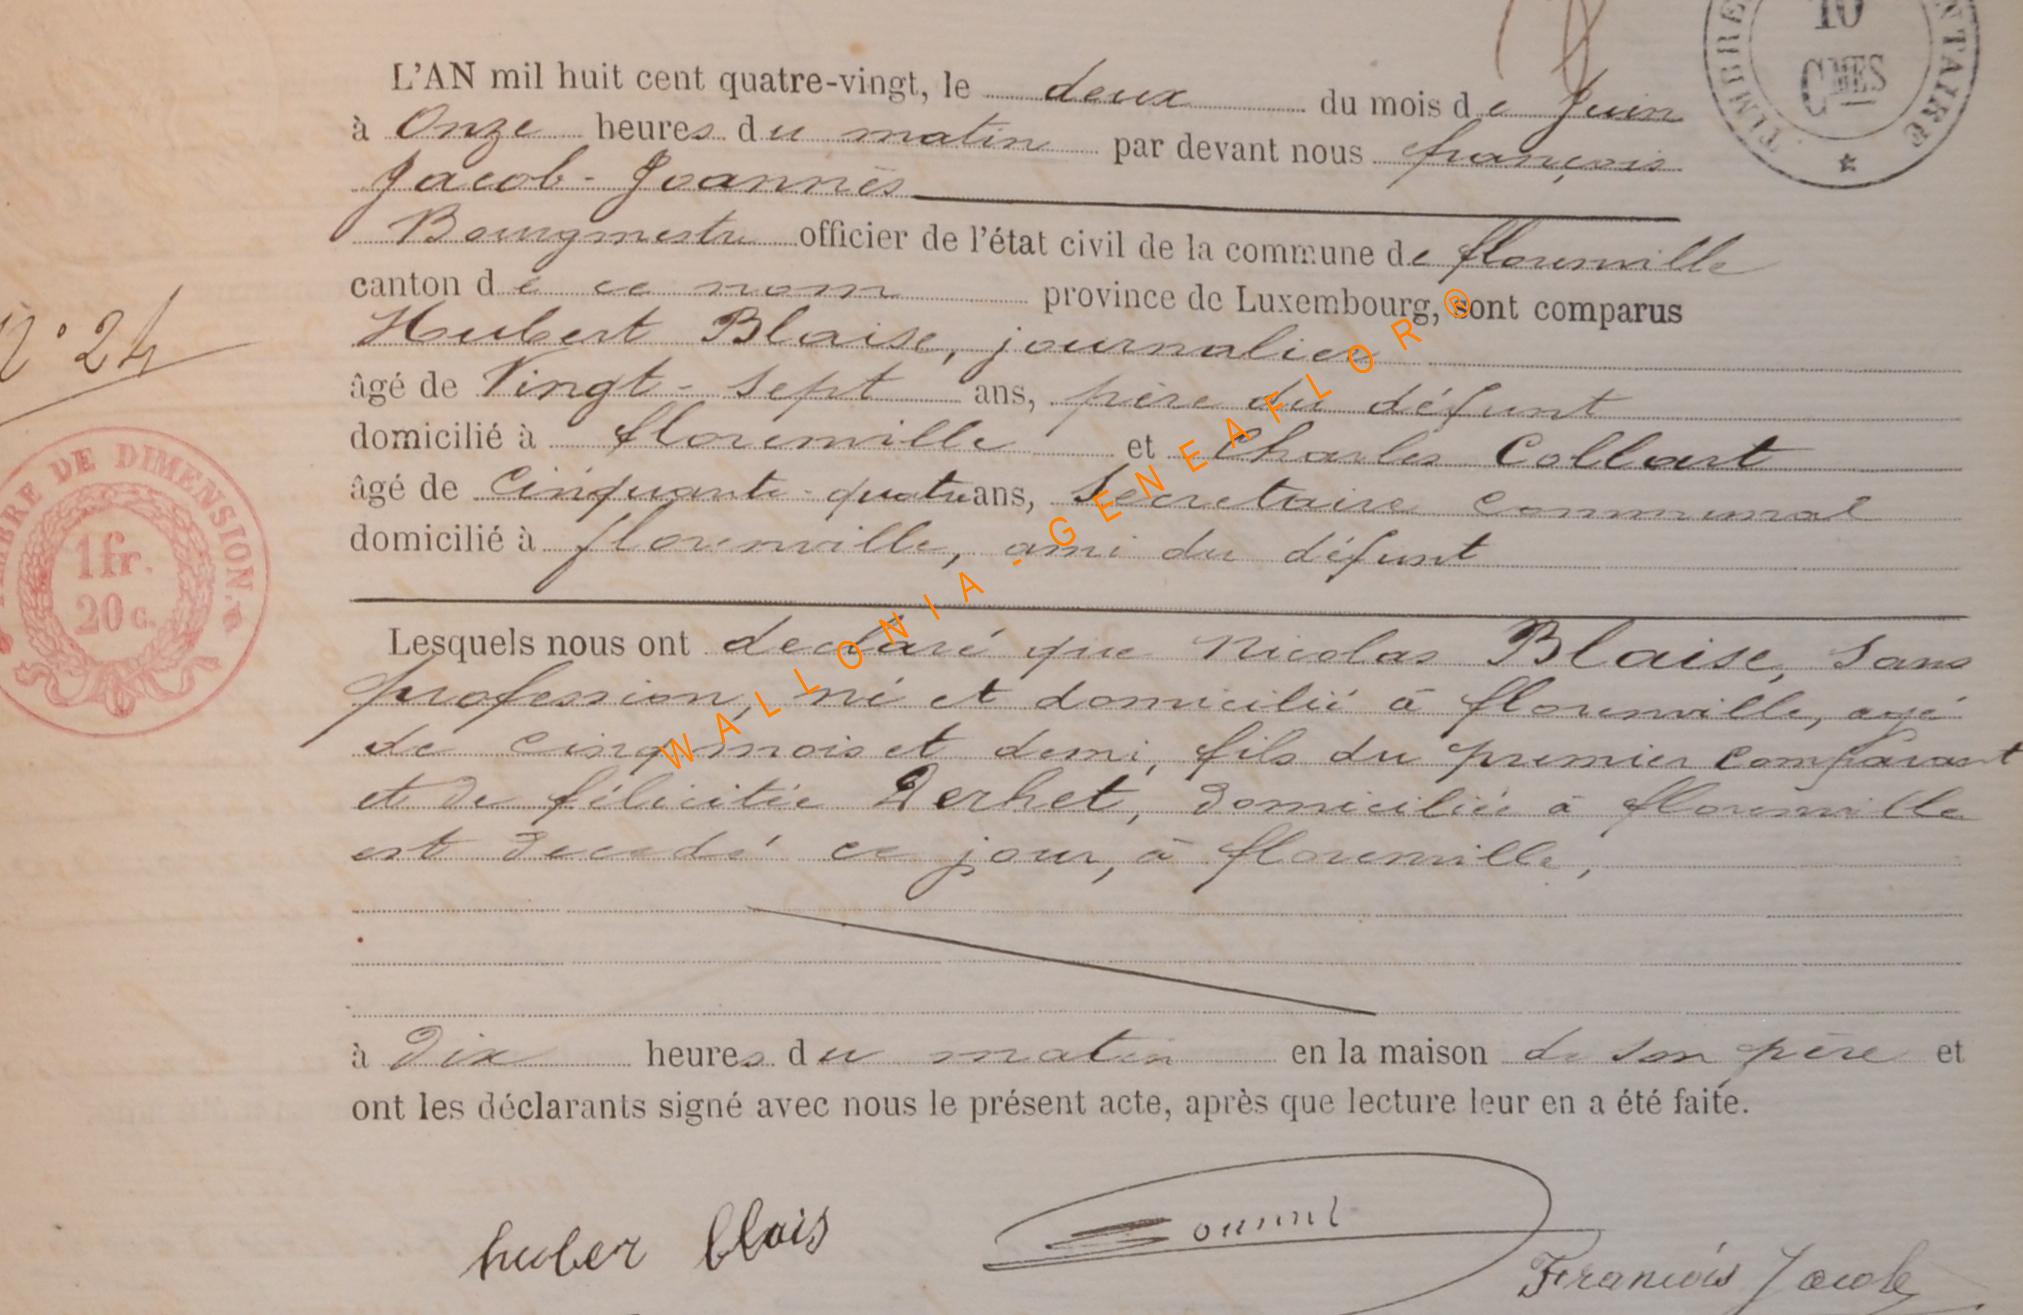 L'AN mil huit cent quatre-vingt, le deux du mois de Juin
à Onze heures du matin par devant nous françois
Jacob-Joannès
Bourgmestre officier de l'état civil de la commune de florenville
canton de ce nom province de Luxembourg, sont comparus
N° 24
Hubert Blaise, journalier
âgé de Vingt-sept ans, père du défunt
domicilié à florenville et Charles Collart
âgé de Cinquante-quatre ans, Secretaire communal
domicilié à florenville, ami du défunt
Lesquels nous ont declaré que Nicolas Blaise, sans
profession, né et domicilié à florenville, agé
de cinq mois et demi, fils du premier comparant
et de félicitée Derhet, domiciliée à florenville
est decedé ce jour, à florenville,
à Dix heures du matin en la maison de son père et
ont les déclarants signé avec nous le présent acte, après que lecture leur en a été faite.
huber blais
François Jacob
TIMBRE DE DIMENSION.
1 fr.
20 c.
10
CMES
WALLONIA - GENEAFLOR ®